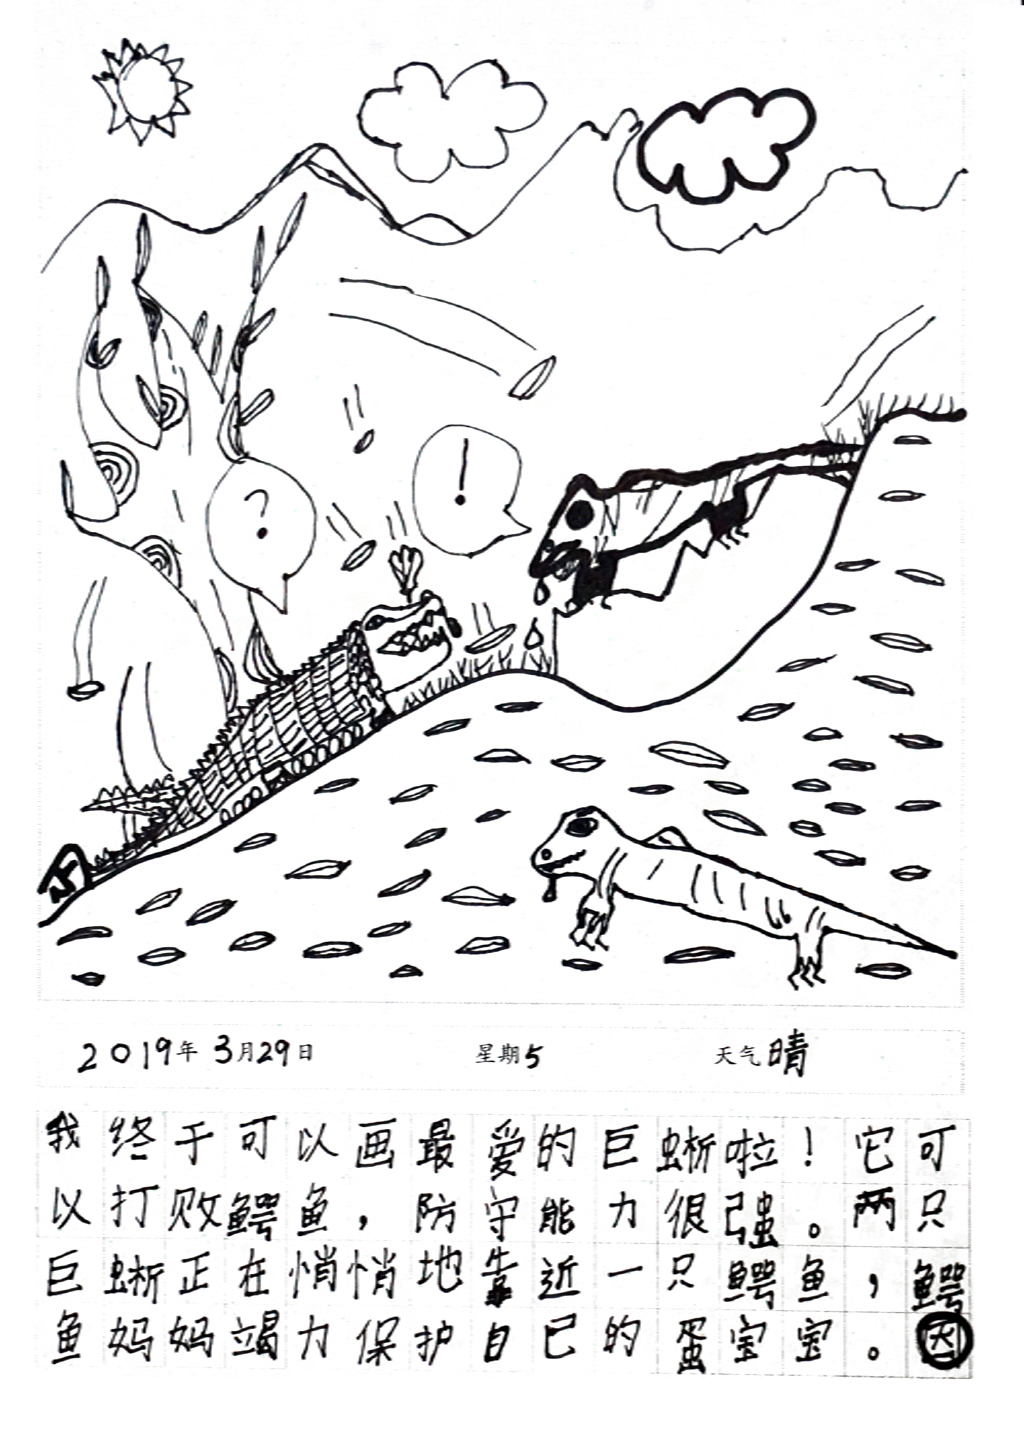 ?
!
2019年 3月29日 星期5 天气晴
我终于可以画最爱的巨蜥啦！它可
以打败鳄鱼，防守能力很强。两只
巨蜥正在悄悄地靠近一只鳄鱼，鳄
鱼妈妈竭力保护自己的蛋宝宝。因